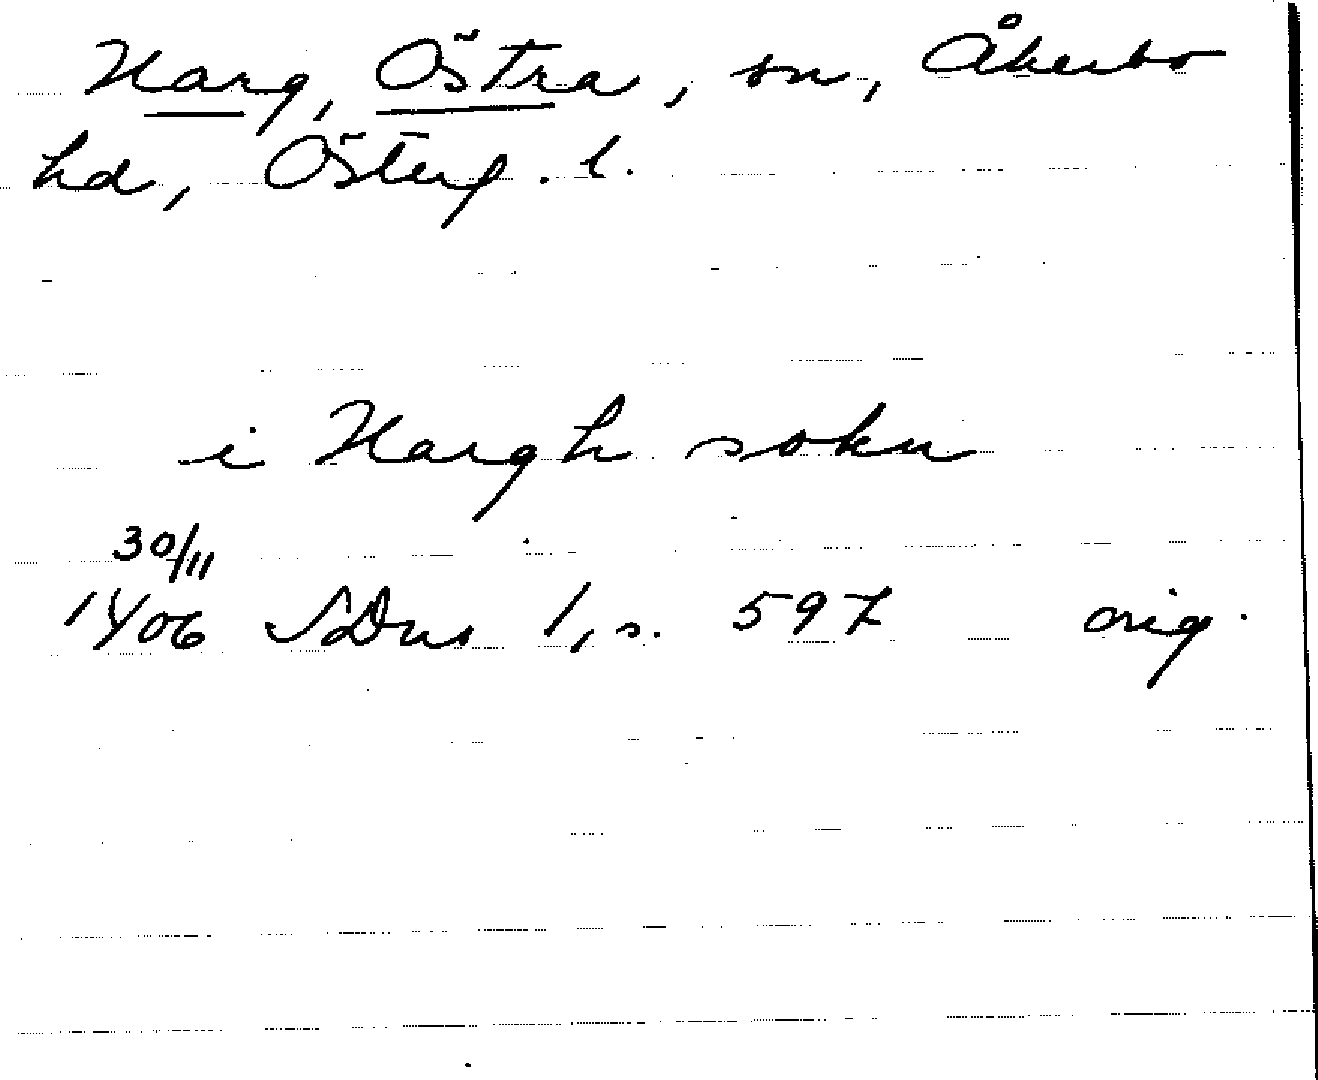 Harg, Östra, sn, Åkerbo
hd, Österg. l.
i Hargh sokn
30/11
1406 SDns 1, s. 597 orig.